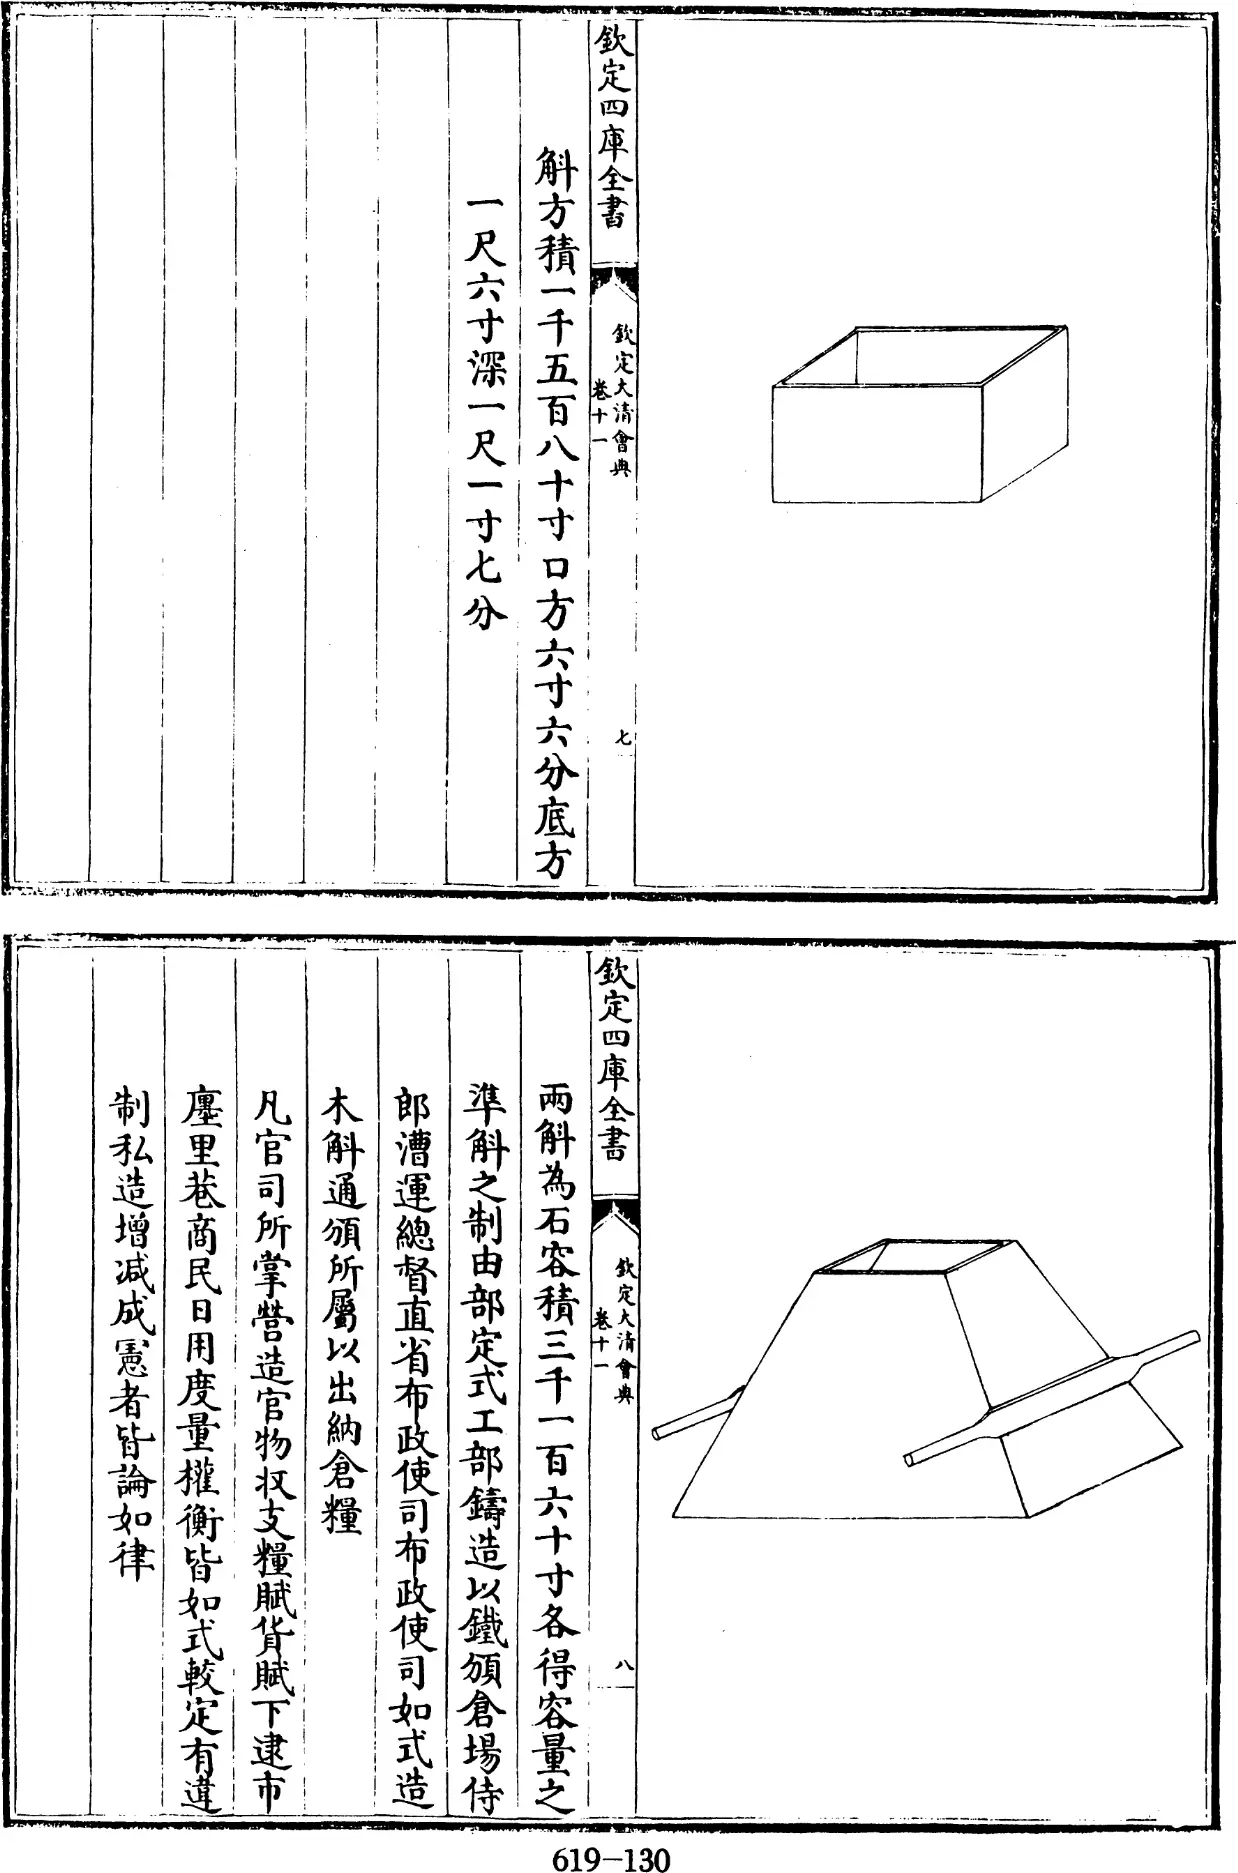 欽定四庫全書
欽定大清會典
卷十一
七
斛方積一千五百八十寸口方六寸六分底方
一尺六寸深一尺一寸七分
欽定四庫全書
欽定大清會典
卷十一
八
兩斛為石容積三千一百六十寸各得容量之
準斛之制由部定式工部鑄造以鐵頒倉場侍
郎漕運總督直省布政使司布政使司如式造
木斛通頒所屬以出納倉糧
凡官司所掌營造官物收支糧賦貨賦下逮市
廛里巷商民日用度量權衡皆如式較定有違
制私造增減成憲者皆論如律
619-130